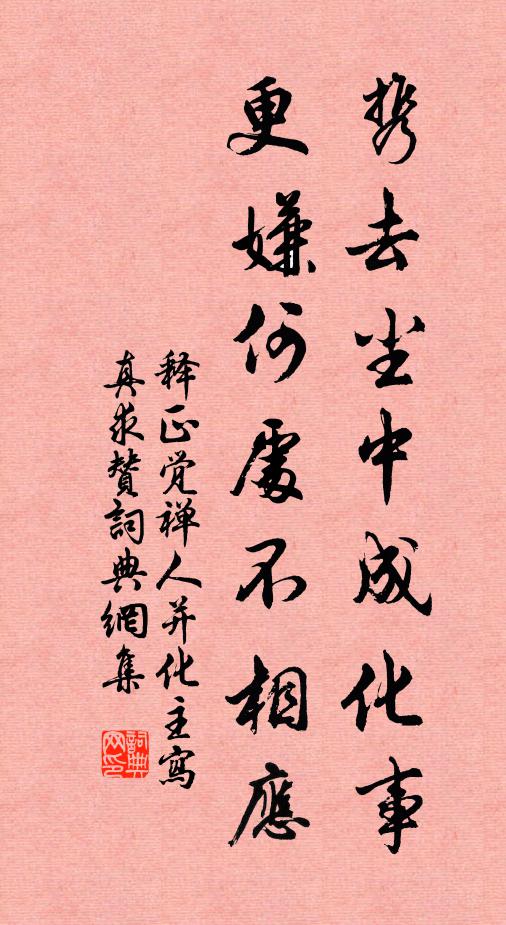 携去尘中成化事
更嫌何處不相應
释正觉禅人并化主寫
真求赞詞典網集
詞典网印